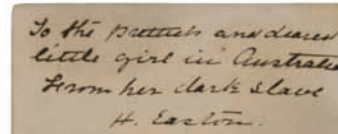 To the prettiest and dearest
little girl in Australia
From her dark slave
H. Easton.